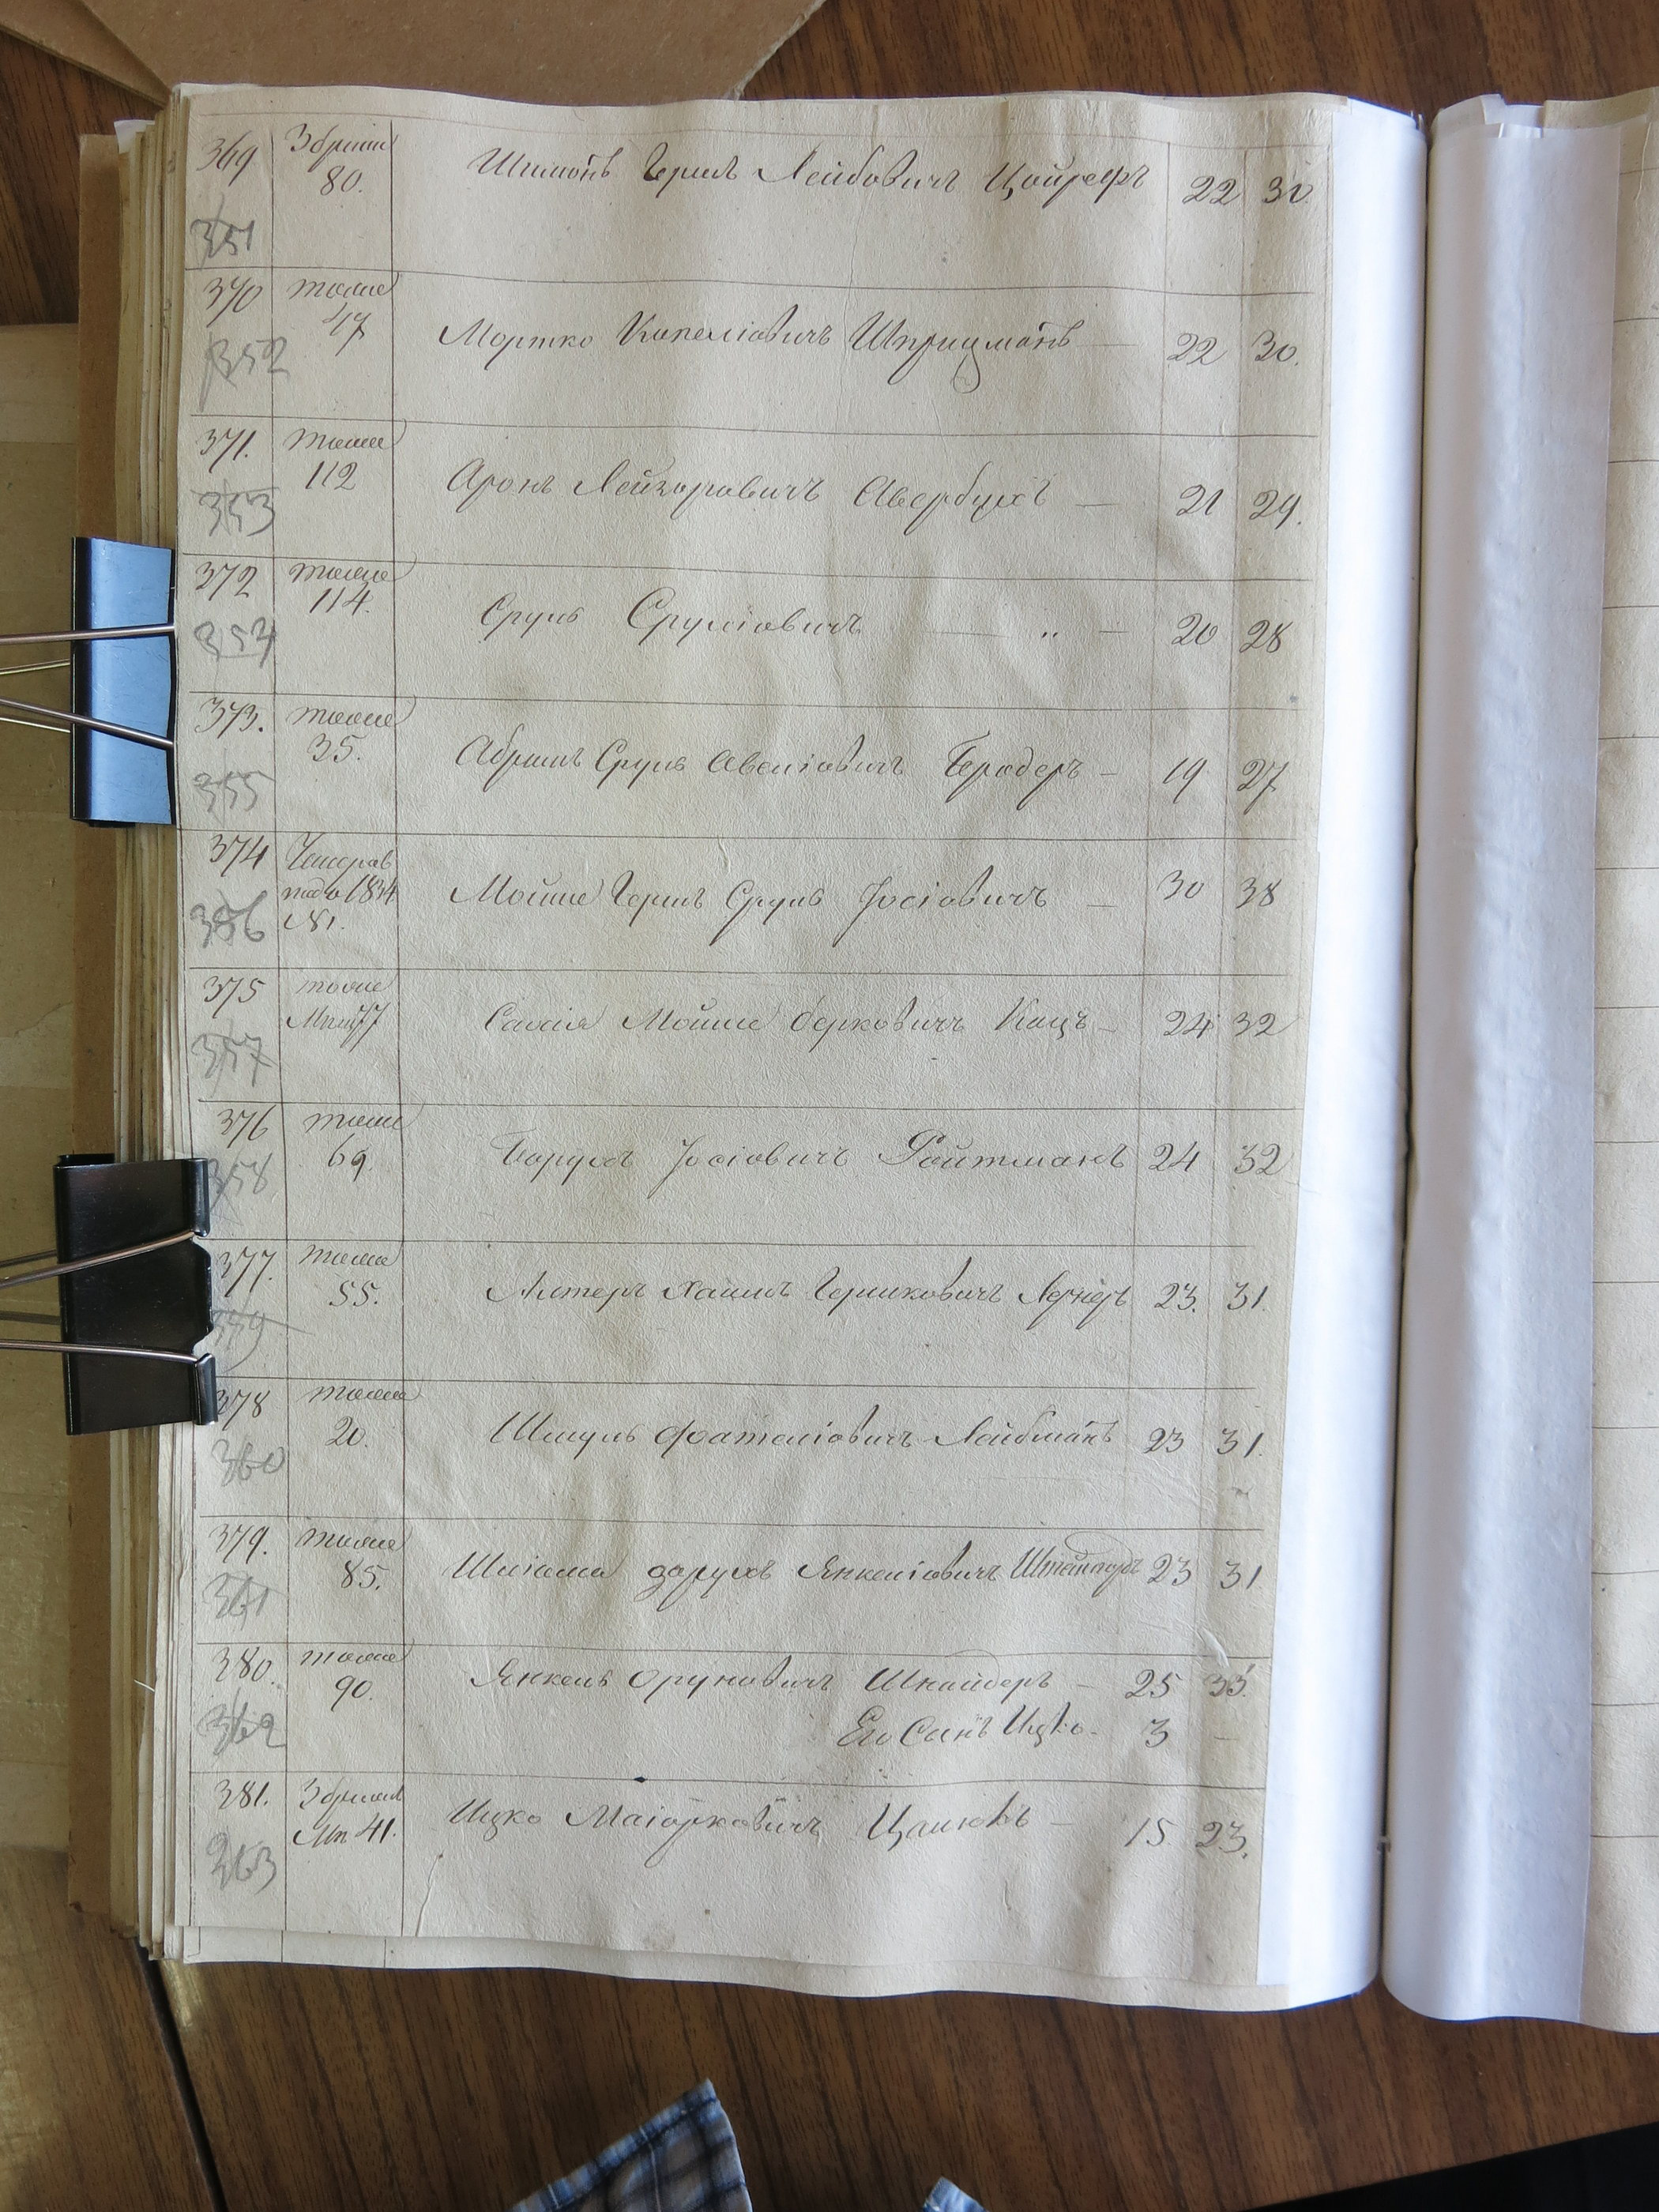 369 80. Шимонъ Гершъ Лейбовичъ Цойрефъ 22 30.
351
370 тоже 47 Мортко Копелiовичъ Шприцманъ — 22 30.
352
371. тоже 112 Аронъ Лейзоровичъ Авербухъ — 21 29.
353
372 тоже 114. Сруль Срулiовичъ — „ — 20 28
354
373. тоже 35. Абрамъ Сруль Авелiовичъ Бродеръ — 19 27
355
374 1834 №1. Мойше Гершъ Сруль Iосiовичъ — 30 38
356
375 тоже Мойше Берковичъ Кацъ — 24 32
357
376 тоже 69 Борухъ Iосiовичъ Ройтманъ 24 32
358
377. тоже 55. Алтеръ Хаимъ Гершковичъ Лернеръ 23. 31.
359
378 тоже 20. Шмуль Фателiовичъ Лейбманъ 23 31.
360
379. тоже 85. Шлiома Янкелiовичъ 23 31.
361
380. тоже 90. Янкель Шнайдеръ — 25 33.
362 Его Сынъ Ицко — 3 —
381. 41. Ицко Маiорковичъ — 15 23.
363